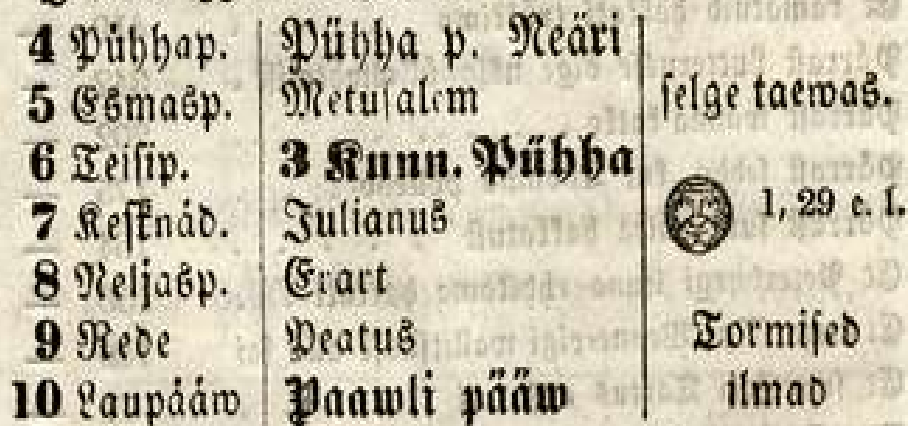 4 Pühhap. Pühha p. Neäri
5 Esmasp. Metusalem selge taewas.
6 Teisip. 3 Kunn. Pühha
7 Kesknäd. Julianus 1, 29 e. l.
8 Neljasp. Erart
9 Rede Peatus Tormised
10 Laupääw Paawli pääw ilmad